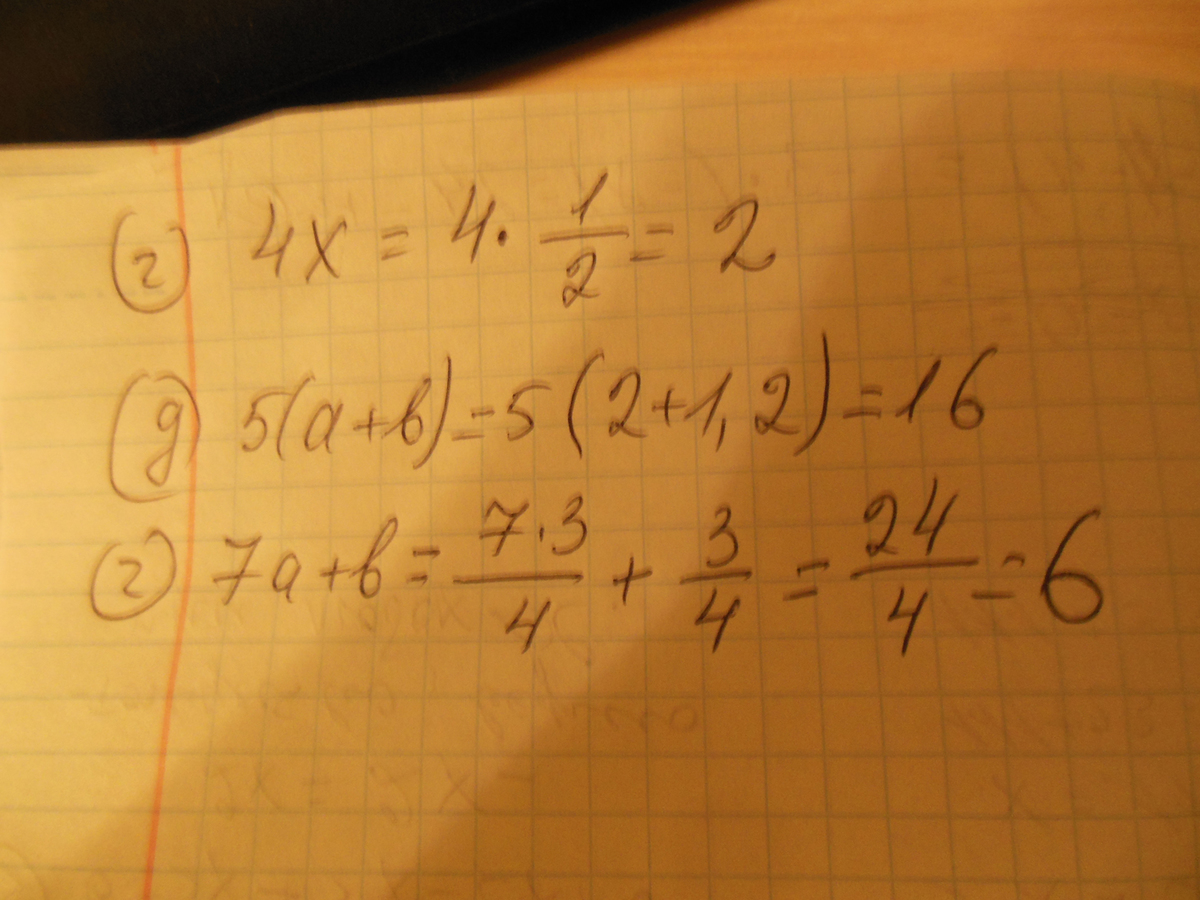 г) 4x = 4 · 1/2 = 2
д) 5(a+b) = 5(2+1,2) = 16
г) 7a+b = 7·3/4 + 3/4 = 24/4 = 6